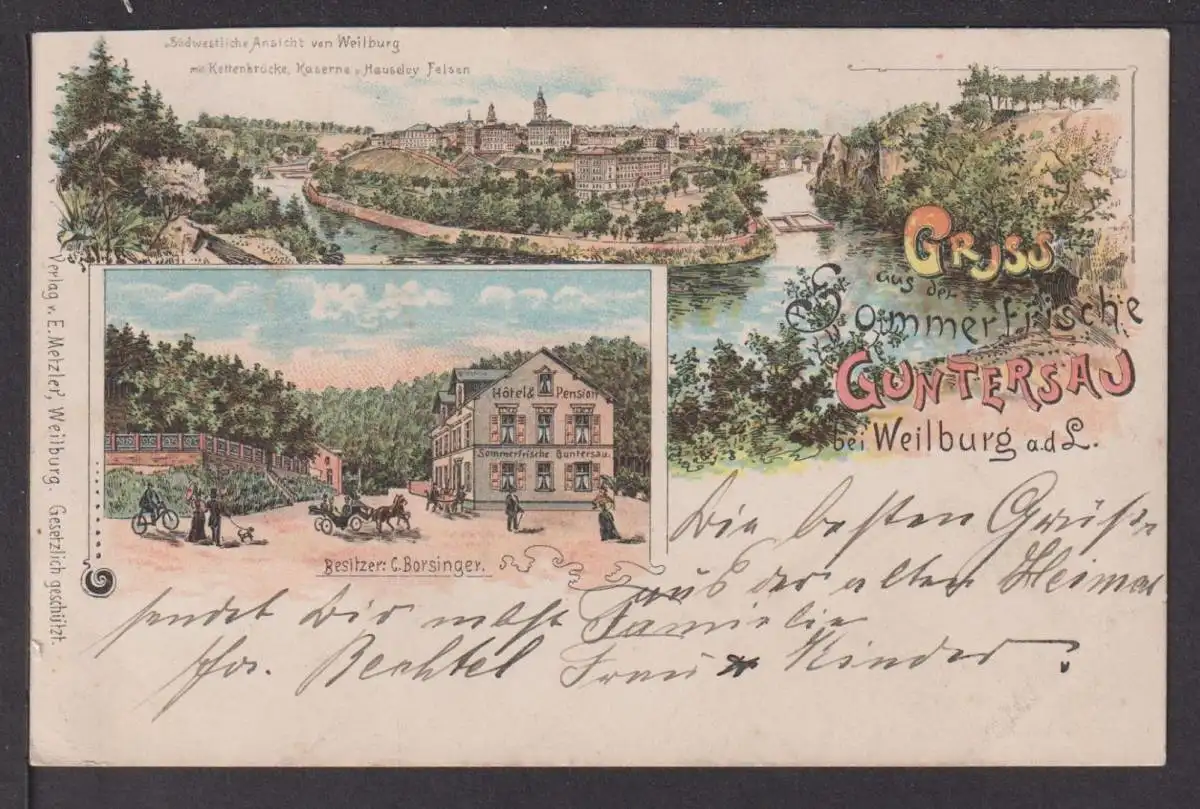 Südwestliche Ansicht von Weilburg
mit Kettenbrücke, Kaserne u. Hauseley Felsen
Gruss
aus der
Sommerfrische
Guntersau
bei Weilburg a.d L.
Hôtel & Pension
Sommerfrische Guntersau.
Besitzer: C. Borsinger.
Verlag v. E. Metzler, Weilburg. Gesetzlich geschützt.
Die besten Grüße
aus der alten Heimat
sendet Dir nebst Familie
Jos. Bechtel Frau u Kinder